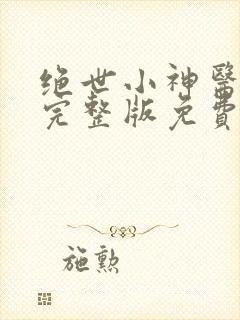 绝世小神醫
完整版免費
施勲